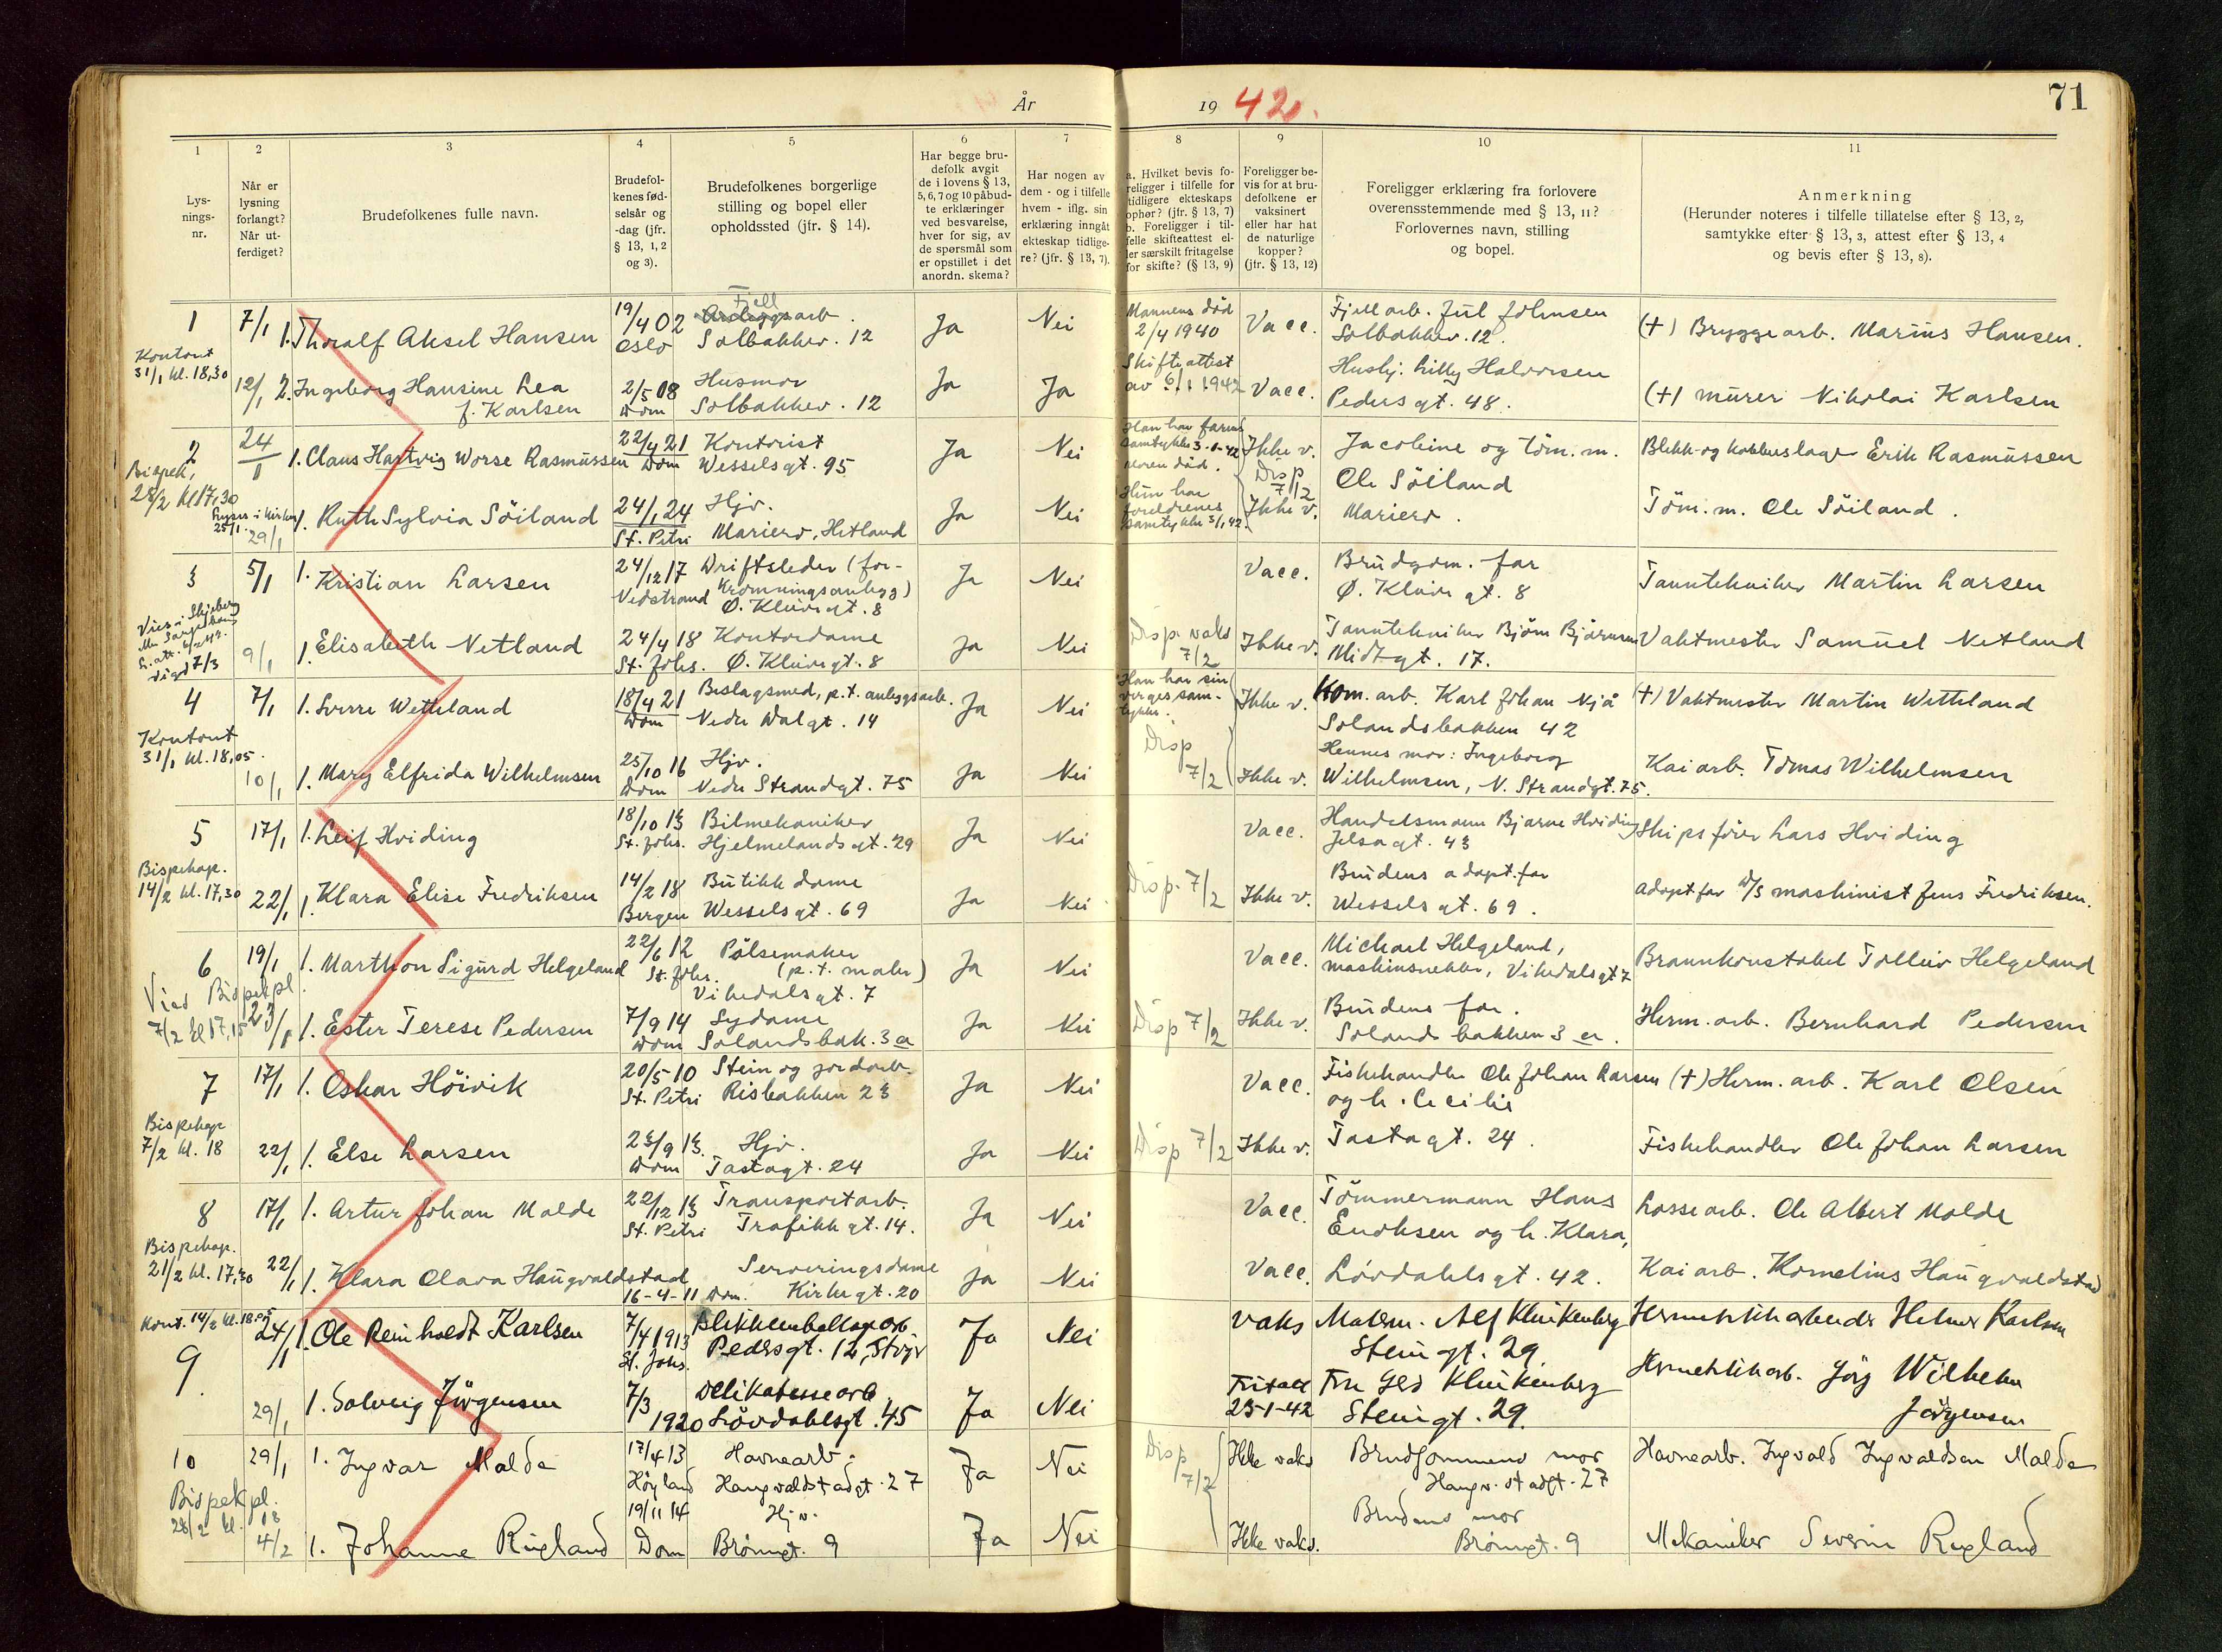 71
År 1942.
1
Lys-
nings-
nr.
2
Når er
lysning
forlangt?
Når ut-
ferdiget?
3
Brudefolkenes fulle navn.
4
Brudefol-
kenes fød-
selsår og
-dag (jfr.
§ 13, 1, 2
og 3).
5
Brudefolkenes borgerlige
stilling og bopel eller
opholdssted (jfr. § 14).
6
Har begge bru-
defolk avgit
de i lovens § 13,
5, 6, 7 og 10 påbud-
te erklæringer
ved besvarelse,
hver for sig, av
de spørsmål som
er opstillet i det
anordn. skema?
7
Har nogen av
dem - og i tilfelle
hvem - iflg. sin
erklæring inngåt
ekteskap tidlige-
re? (jfr. § 13, 7).
8
a. Hvilket bevis fo-
religger i tilfelle for
tidligere ekteskaps
ophør? (jfr. § 13, 7)
b. Foreligger i til-
felle skifteattest el-
ler særskilt fritagelse
for skifte? (§ 13, 9)
9
Foreligger be-
vis for at bru-
defolkene er
vaksinert
eller har hat
de naturlige
kopper?
(jfr. § 13, 12)
10
Foreligger erklæring fra forlovere
overensstemmende med § 13, 11?
Forlovernes navn, stilling
og bopel.
11
Anmerkning
(Herunder noteres i tilfelle tillatelse efter § 13, 2,
samtykke efter § 13, 3, attest efter § 13, 4
og bevis efter § 13, 8).
1
Kontort
31/1 kl. 18,30
7/1
1. Thoralf Aksel Hansen
19/4 02
Oslo
Fjell
Anleggsarb.
Solbakkev. 12
Ja
Nei
Mannens død
2/4 1940
Vacc.
Fjellarb. Jul Johnsen
Solbakkev. 12.
(+) Bryggearb. Marius Hansen.
12/1
2. Ingeborg Hansine Lea
f. Karlsen
2/5 08
Dom
Husmor
Solbakkev. 12
Ja
Ja
Skifteattest
av 6/1 1942
Vacc.
Husbj. Lilly Halvorsen
Pedersgt. 48.
(+) murer Nikolai Karlsen
2
Bispek,
28/2 kl 17,30
24/1
1. Claus Hartvig Worse Rasmussen
22/4 21
Dom
Kontorist
Wesselsgt. 95
Ja
Nei
Han har farens
samtykke 3-1-42
moren død.
Ikke v.
Disp
7/2
Jacobine og töm.m.
Ole Söiland
Marierо.
Blikk-og kobberslager Erik Rasmussen
Lyses i kirken
25/1.
29/1
1. Ruth Sylvia Söiland
24/1 24
St. Petri
Hjv.
Mariero, Hetland
Ja
Nei
Hun har
foreldrenes
samtykke 3/1 42.
Ikke v.
Töm.m. Ole Söiland.
3
5/1
1. Kristian Larsen
24/12 17
Nedstrand
Driftsleder (for-
kromningsanlegg)
Ø. Kluvergt. 8
Ja
Nei
Vacc.
Brudgom. far
Ø. Kluvergt. 8
Tanntekniker Martin Larsen
vigd 7/3
9/1
1. Elisabeth Netland
24/4 18
St. Johs.
Kontordame
Ø. Kluvergt. 8
Ja
Nei
Disp vaks
7/2
Ikke v.
Tanntekniker Björn Bjørnsen
Midtgt. 17.
Vaktmester Samuel Netland
4
Kontort
31/1 kl. 18,05.
7/1
1. Sverre Wetteland
18/4 21
Dom
Beslagsmed, p.t. anleggsarb.
Nedre Dalgt. 14
Ja
Nei
Han har sin
verges sam-
tykke.
Disp
7/2
Ikke v.
Kom. arb. Karl Johan Njå
Solandsbakken 42
(+) Vaktmester Martin Wetteland
10/1
1. Mary Elfrida Wilhelmsen
25/10 16
Dom
Hjv.
Nedre Strandgt. 75
Ja
Nei
Ikke v.
Hennes mor: Ingeborg
Wilhelmsen, N. Strandgt. 75.
Kaiarb. Tomas Wilhelmsen
5
Bispekap.
14/2 kl. 17,30
17/1
1. Leif Hviding
18/10 13
St. Johs.
Bilmekaniker
Hjelmelandsgt. 29
Ja
Nei
Vacc.
Handelsmann Bjarne Hviding
Jelsagt. 43
Skipsförer Lars Hviding
22/1
1. Klara Elise Fredriksen
14/2 18
Bergen
Butikkdame
Wesselsgt. 69
Ja
Nei
Disp. 7/2
Ikke v.
Brudens adopt.far
Wesselsgt. 69.
Adoptfar D/S maskinist Jens Fredriksen.
6
Vies Bispekpl
7/2 kl 17,15
19/1
1. Marthon Sigurd Helgeland
22/6 12
St. Johs.
Pölsemaker
(p.t. maler)
Vikedalsgt. 7
Ja
Nei
Vacc.
Michael Helgeland,
maskinsnekker, Vikedalsgt 7
Brannkonstabel Tolleiv Helgeland
23/1
1. Ester Terese Pedersen
7/9 14
Dom
Sydame
Solandsbak. 3 a
Ja
Nei
Disp 7/2
Ikke v.
Brudens far.
Solandsbakken 3 a.
Herm. arb. Bernhard Pedersen
7
Bispekap
7/2 kl. 18
17/1
1. Oskar Höivik
20/5 10
St. Petri
Stein og jordarb.
Risbakken 23
Ja
Nei
Vacc.
Fiskehandler Ole Johan Larsen
og h. Cecilie
Tastagt. 24.
(+) Herm. arb. Karl Olsen
22/1
1. Else Larsen
23/9 13.
Dom
Hjv.
Tastagt. 24
Ja
Nei
Disp 7/2
Ikke v.
Fiskehandler Ole Johan Larsen
8
Bispekap.
21/2 kl. 17,30
17/1
1. Artur Johan Malde
22/12 13
St. Petri
Transportarb.
Trafikkgt. 14.
Ja
Nei
Vacc.
Tömmermann Hans
Enoksen og h. Klara,
Lövdahlsgt. 42.
Lossearb. Ole Albert Malde
22/1
1. Klara Olava Haugvaldstad
16-4-11 Dom.
Serveringsdame
Kirkegt. 20
Ja
Nei
Vacc.
Kaiarb. Kornelius Haugvaldstad
9
Kont. 14/2 kl. 18.05
24/1
1. Ole Reinholdt Karlsen
7/4 1913
St. Johs.
Blikkemballagearb
Pedersgt. 12, Stvgr
Ja
Nei
Vaks
Malerm. Alf Klinkenberg
Steingt. 29.
Hermetikkarbeider Helmer Karlsen
29/1
1. Solveig Jörgensen
7/3 1920
Delikatessearb
Lövdahlsgt. 45
Ja
Nei
Fritatt
23-1-42
Fru Gerd Klinkenberg
Steingt. 29.
Hermetikkarb. Jörg Wilhelm
Jörgensen
10
Bispekpl.
28/2 kl. 18
29/1
1. Ingvar Malde
17/4 13
Höyland
Havnearb.
Haugvaldstadgt. 27
Ja
Nei
Disp
7/2
Ikke vaks
Brudgommens mor
Haugv.stadgt. 27
Havnearb. Ingvald Ingvaldsen Malde
4/2
1. Johanne Rugland
19/11 14
Dom
Hjv.
Brönngt. 9
Ja
Nei
Ikke vaks.
Brudens mor
Brönngt. 9
Mekaniker Severin Rugland